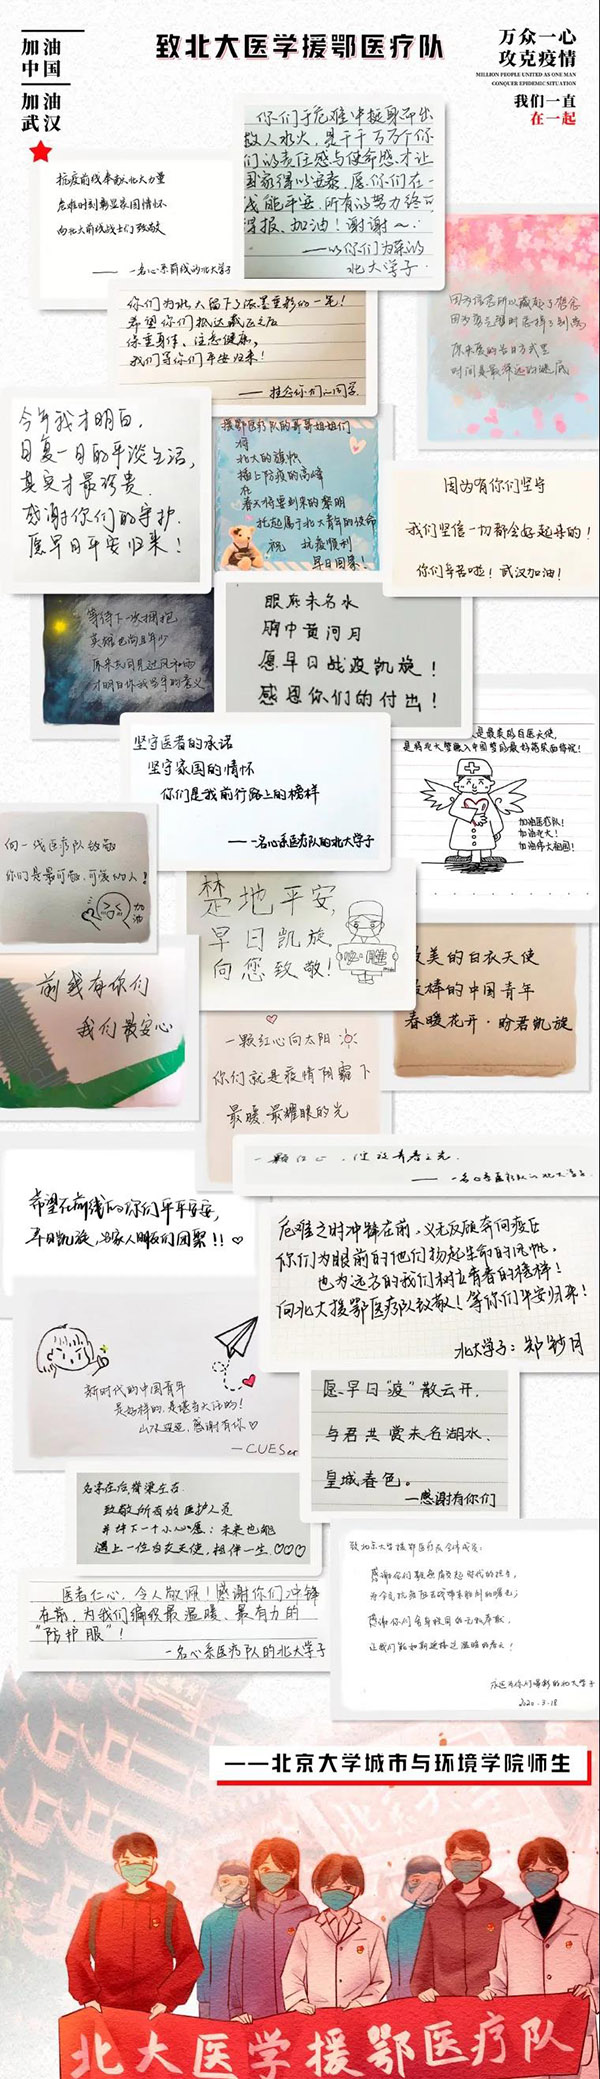 加油
中国
加油
武汉
致北大医学援鄂医疗队
万众一心
攻克疫情
MILLION PEOPLE UNITED AS ONE MAN
CONQUER EPIDEMIC SITUATION
我们一直
在一起
你们于危难中挺身而出
救人水火，是千千万万个你
们的责任感与使命感，才让
国家得以安泰，愿你们在一
线能平安，所有的努力终
得报、加油！谢谢～
——以你们为荣的
北大学子
抗疫前线奉献北大力量
危难时刻彰显家国情怀
向北大前线战士们致敬
——一名心系前线的北大学子
你们为北大留下了浓墨重彩的一笔！
希望你们抵达藏区之后
保重身体、注意健康，
我们等你们平安归来！
——挂念你们的同学
因为信念所以藏起了想念
时间是最深远的谜底
今年我才明白，
日复一日的平淡生活，
其实才最珍贵．
感谢你们的守护．
愿早日平安归来！
援鄂医疗队的哥哥姐姐们
将
北大的旗帜
插上防疫的高峰
在
春天将要到来的黎明
托起属于北大青年的使命
祝 抗疫顺利
早日回家！
因为有你们坚守
我们坚信一切都会好起来的！
你们辛苦啦！武汉加油！
等待下一次拥抱
英雄也尚且年少
才明白你我当年的意义
眼底未名水
胸中黄河月
愿早日战疫凯旋！
感恩你们的付出！
坚守医者的承诺
坚守家国的情怀
你们是我前行路上的榜样
——一名心系医疗队的北大学子
人是最美的白衣天使，
是将北大梦融入中国梦的最好的英雄情怀！
加油医疗队！
加油北大！
加油伟大祖国！
向一线医疗队致敬
你们是最可敬，可爱的人！
加油
楚地平安，
早日凯旋
向您致敬！
必胜
最美的白衣天使
最棒的中国青年
春暖花开·盼君凯旋
前线有你们
我们最安心
一颗红心向太阳
你们就是疫情阴霾下
最暖、最耀眼的光
一颗红心，绽放青春之光．
——一名心系医疗队的北大学子
希望在前线的你们平平安安，
早日凯旋，与家人朋友们团聚！！
危难之时冲锋在前，义无反顾奔向疫区
你们为眼前的他们扬起生命的风帆，
也为远方的我们树立青春的榜样！
向北大援鄂医疗队致敬！等你们平安归来！
北大学子：郑钞月
新时代的中国青年
是好样的，是堪当大任的！
山水迢迢，感谢有你
—CUESer
愿早日“疫”散云开，
与君共赏未名湖水、
皇城春色。
—感谢有你们
名字在后，脊梁在右
致敬所有的医护人员
并许下一个小心愿：未来也能
遇上一位白衣天使，相伴一生
医者仁心，令人敬佩！感谢你们冲锋
在前，为我们编织最温暖、最有力的
“防护服”！
—一名心系医疗队的北大学子
致北京大学援鄂医疗队全体成员：
感谢你们舍身报国的无私奉献，
2020.3.18
——北京大学城市与环境学院师生
北大医学援鄂医疗队